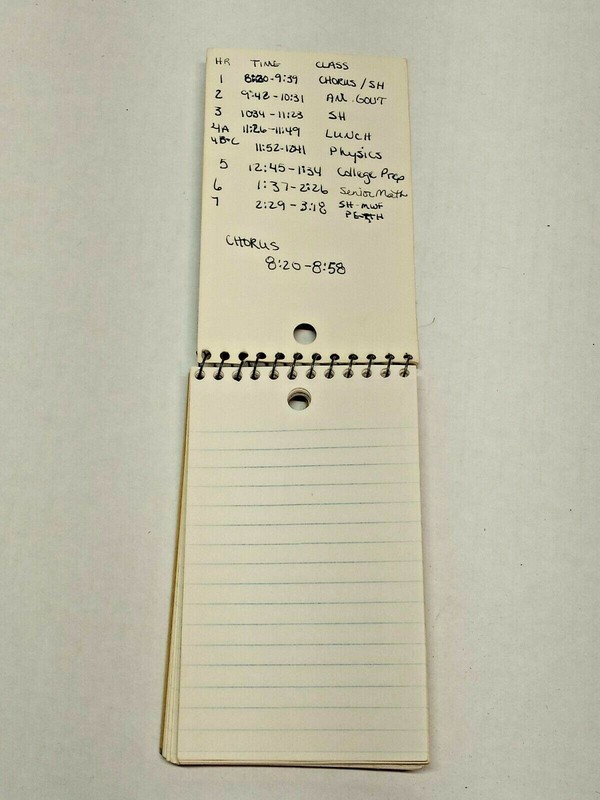 HR TIME CLASS
1 8:20-9:39 CHORUS / SH
2 9:42-10:31 AM. GOVT
3 1034-11:23 SH
4A 11:26-11:49 LUNCH
4B-C 11:52-1241 Physics
5 12:45-1:34 College Prep
6 1:37-2:26 Senior Math
7 2:29-3:18 SH-MWF
PE-TTH
CHORUS
8:20-8:58